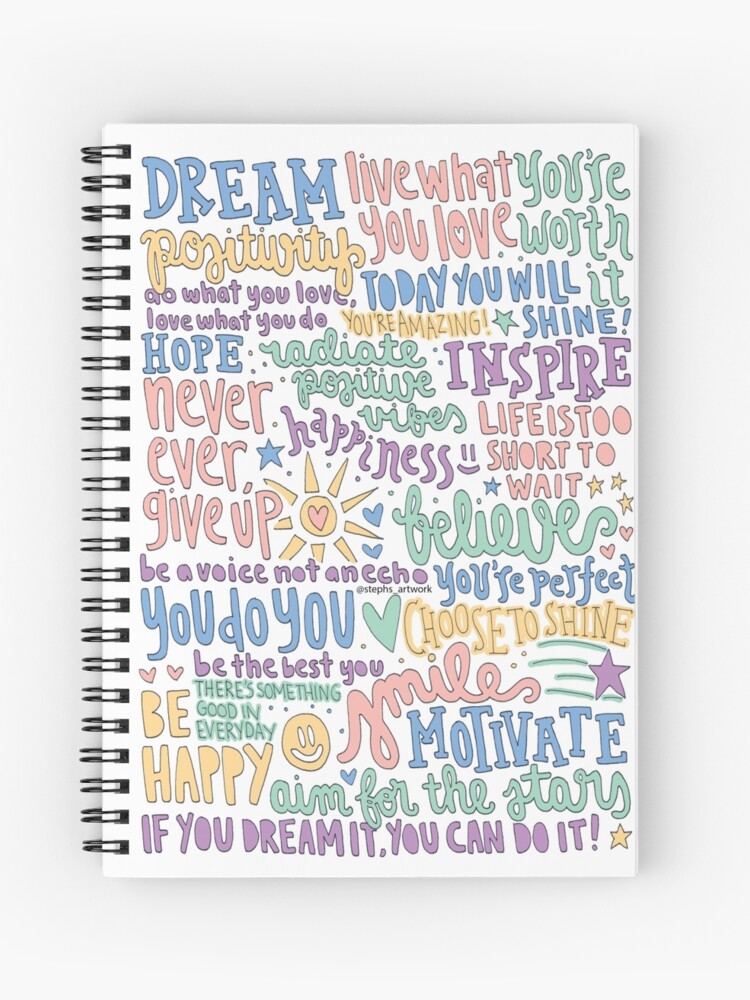 DREAM
live what
you love
you're
worth
it
positivity
do what you love,
love what you do
TODAY YOU WILL
SHINE!
YOU'RE AMAZING!
HOPE
radiate
positive
vibes
INSPIRE
never
ever
give up
happiness
LIFE IS TOO
SHORT TO
WAIT
believe
be a voice not an echo
@stephs_artwork
you're perfect
YOU do YOU
CHOOSE TO SHINE
be the best you
THERE'S SOMETHING
GOOD IN
EVERYDAY
smile
BE
HAPPY
MOTIVATE
aim for the stars
IF YOU DREAM IT, YOU CAN DO IT!